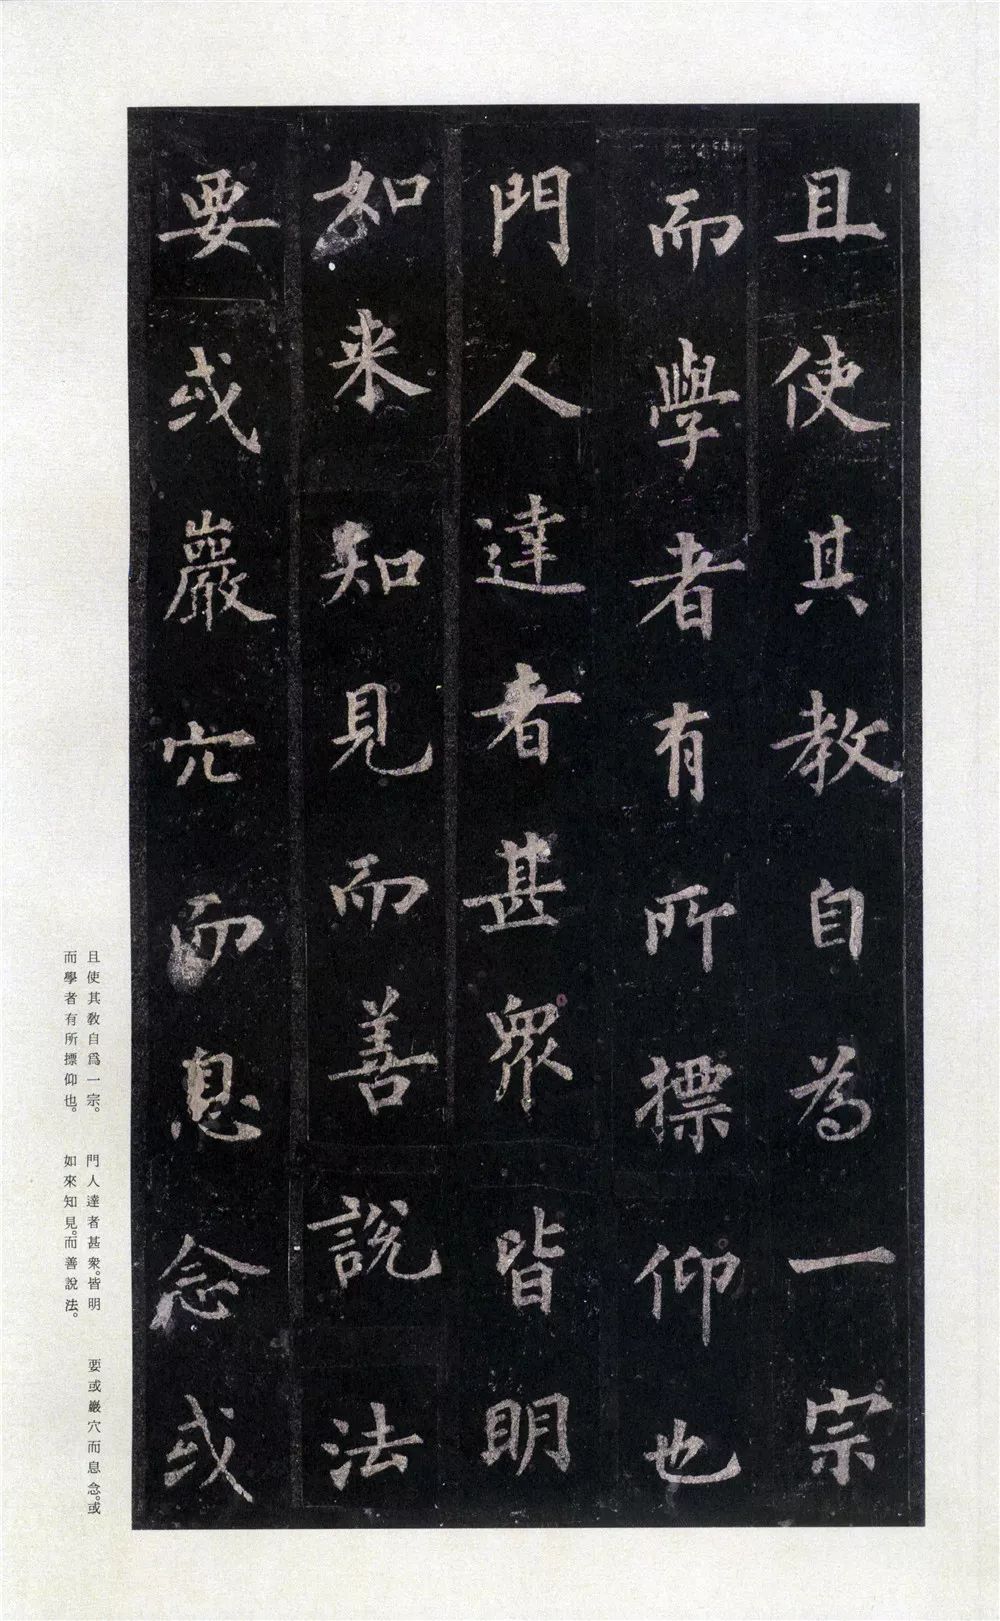 且使其教自為一宗
而學者有所摽仰也
門人達者甚衆皆明
如来知見而善說法
要或巖穴而息念或
且使其教自爲一宗。
而學者有所摽仰也。
門人達者甚衆。皆明
如來知見。而善說法。
要或巖穴而息念。或